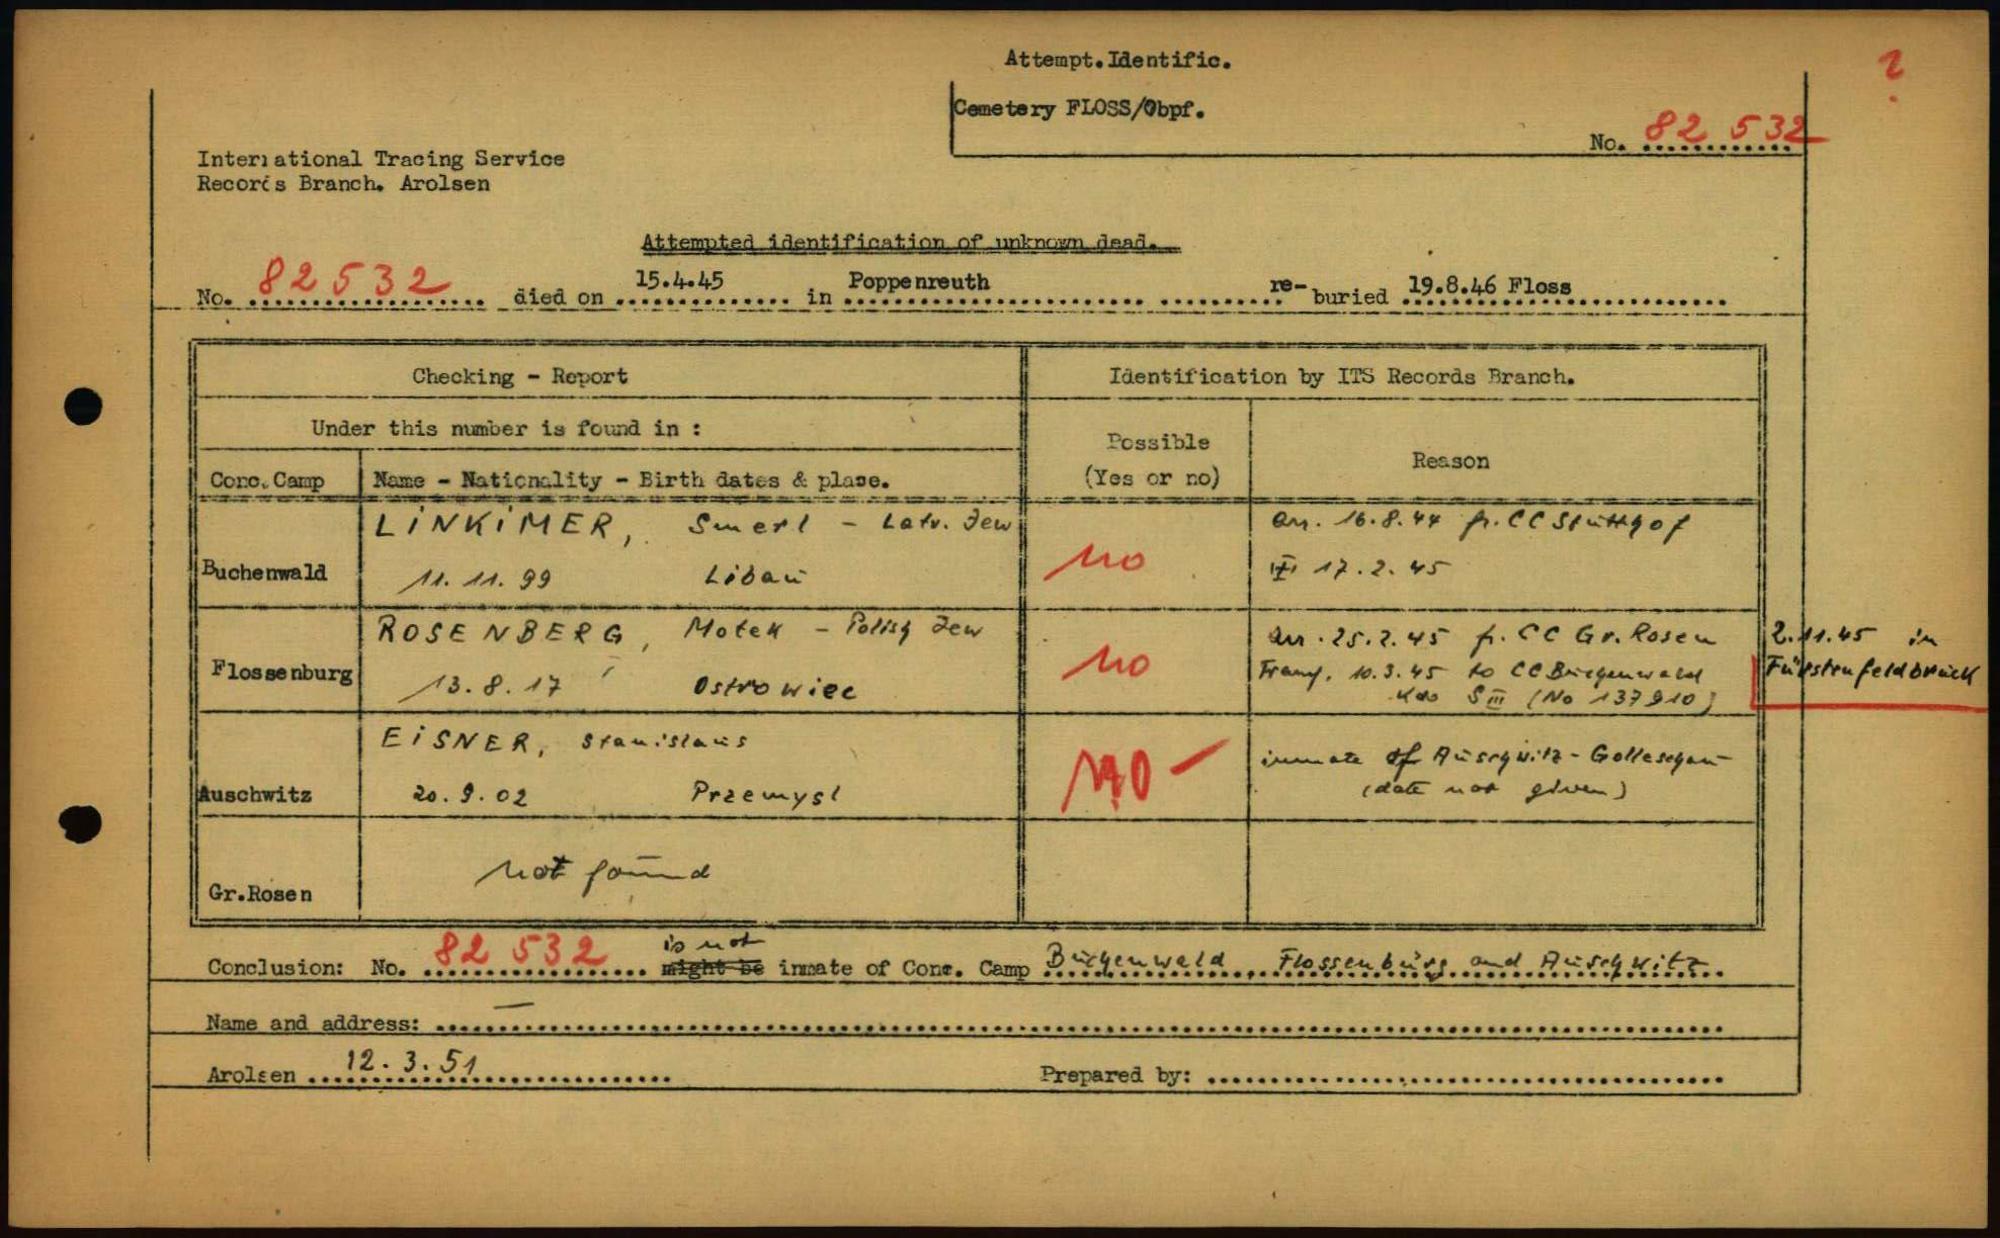 Attempt.Identific.
?
Cemetery FLOSS/Obpf.
No. 82 532
International Tracing Service
Records Branch. Arolsen
Attempted identification of unknown dead.
No. 82532 died on 15.4.45 in Poppenreuth re-buried 19.8.46 Floss
Checking - Report
Identification by ITS Records Branch.
Under this number is found in :
Possible
(Yes or no)
Reason
Conc. Camp
Name - Nationality - Birth dates & place.
Buchenwald
LINKIMER, Smerl - Latv. Jew
11.11.99 Libau
no
arr. 16.8.44 fr. CC Stutthof
17.2.45
Flossenburg
ROSENBERG, Motek - Polish Jew
13.8.17 Ostrowiec
no
arr. 25.2.45 fr. CC Gr. Rosen
Transf. 10.3.45 to CC Buchenwald
Kdo S III (No 137910)
2.11.45 in
Fürstenfeldbruck
Auschwitz
EISNER, Stanislaus
20.9.02 Przemysl
no -
inmate of Auschwitz - Golleschau
(date not given)
Gr.Rosen
not found
Conclusion: No. 82 532 is not might be inmate of Conc. Camp Buchenwald, Flossenbürg and Auschwitz
Name and address: —
Arolsen 12.3.51
Prepared by: